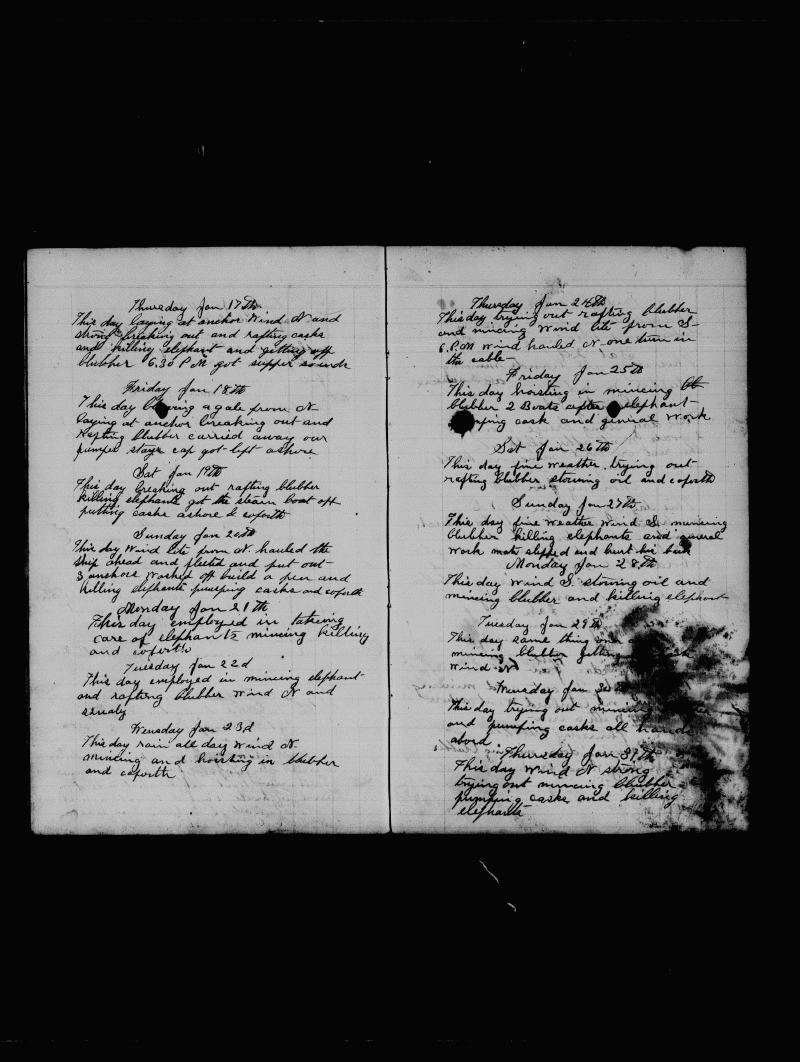 Thursday Jan 17th
This day laying at anchor Wind N and
strong breaking out and rafting casks
and killing elephant and getting off
blubber 6.30 P.M got supper
Friday Jan 18th
This day blowing a gale from N.
laying at anchor breaking out and
Rafting blubber carried away our
pumper stays cap got left ashore
Sat Jan 19th
This day breaking out rafting blubber
killing elephants got the steam boat off
putting casks ashore & coforth
Sunday Jan 20th
This day Wind lite from N. hauled the
ship ahead and fleeted and put out
3 anchors Worked off build a pen and
killing elephants pumping casks and coforth
Monday Jan 21th
This day employed in takeing
care of elephants mincing killing
and coforth
Tuesday Jan 22d
This day employed in mincing elephant
and rafting blubber Wind N and
Wensday Jan 23d
This day rain all day Wind N.
mincing and hoisting in blubber
and coforth
Thursday Jan 24th
This day trying out rafting blubber
and mincing Wind lite from S
6. P.M Wind hauled N one turn in
the cable
Friday Jan 25th
This day hoisting in mincing bb
blubber 2 Boats after elephant
cask and genral Work
Sat Jan 26th
This day fine weather trying out
rafting blubber stowing oil and coforth
Sunday Jan 27th
This day fine weather Wind S. mincing
blubber killing elephants and general
Work mate slipped and hurt his
Monday Jan 28th
This day Wind S. stowing oil and
mincing blubber and killing elephant
Tuesday Jan 29th
This day same thing over
mincing blubber getting cask
Wind N
Wensday Jan 30th
This day trying out mincing
and pumping casks all hands
abord
Thursday Jan 31th
This day Wind N strong
trying out mincing blubber
pumping casks and killing
elephants